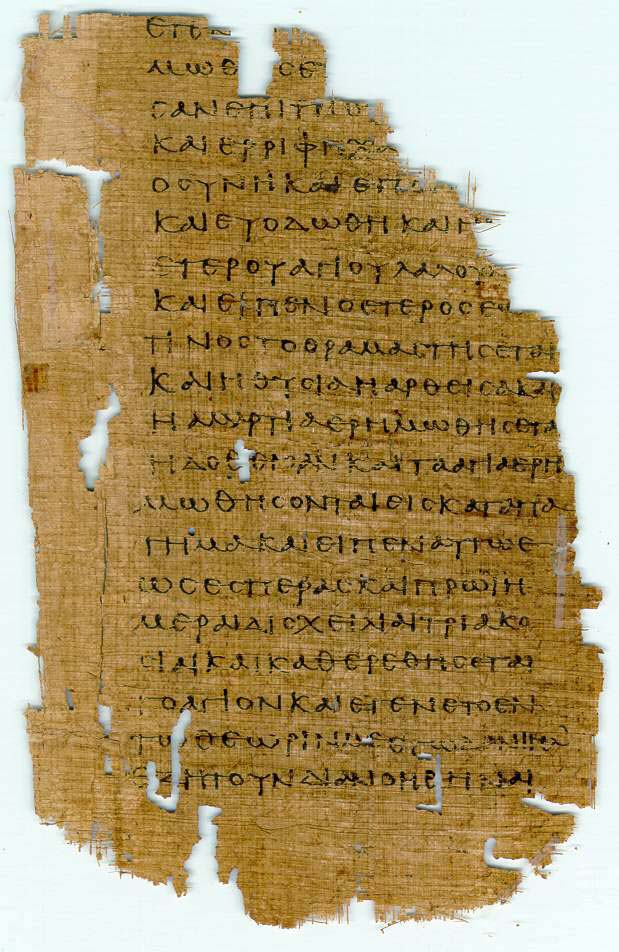 ΕΓΕΝ
ΜΩΘ ΣΕ
ΣΑΝ ΕΠΙ Τ
ΚΑΙ ΕΡΡΙΦΗ ΧΑ
ΟΣΥΝΗ ΚΑΙ ΕΠ
ΚΑΙ ΕΥΟΔΩΘΗ ΚΑΙ Η
ΕΤΕΡΟΥ ΑΓΙΟΥ ΛΑΛΟΥ
ΚΑΙ ΕΙΠΕΝ Ο ΕΤΕΡΟΣ
ΤΙΝΟΣ ΤΟ ΟΡΑΜΑ ΣΤΗΣΕΤΑΙ
ΚΑΙ Η ΘΥΣΙΑ Η ΑΡΘΕΙΣΑ ΚΑΙ
Η ΑΜΑΡΤΙΑ ΕΡΗΜΩΘΗΣΕΤΑ
Η ΔΟΘΙΣΑΝ ΚΑΙ ΤΑ ΑΓΙΑ ΕΡΗ
ΜΩΘΗΣΟΝΤΑΙ ΕΙΣ ΚΑΤΑΠΑ
ΤΗΜΑ ΚΑΙ ΕΙΠΕΝ ΑΥΤΩ Ε
ΩΣ ΕΣΠΕΡΑΣ ΚΑΙ ΠΡΩΪ Η
ΜΕΡΑΙ ΔΙΣΧΕΙΛΙΑΙ ΤΡΙΑΚΟ
ΣΙΑΙ ΚΑΙ ΚΑΘΕΡΕΘΗΣΕΤΑΙ
ΤΟ ΑΓΙΟΝ ΚΑΙ ΕΓΕΝΕΤΟ ΕΝ
ΤΩ ΘΕΩΡΙΝ ΜΕ ΕΓΩ ΔΑΝΙΗΛ
ΕΖΗΤΟΥΝ ΔΙΑΝΟΗΘΗΝΑΙ